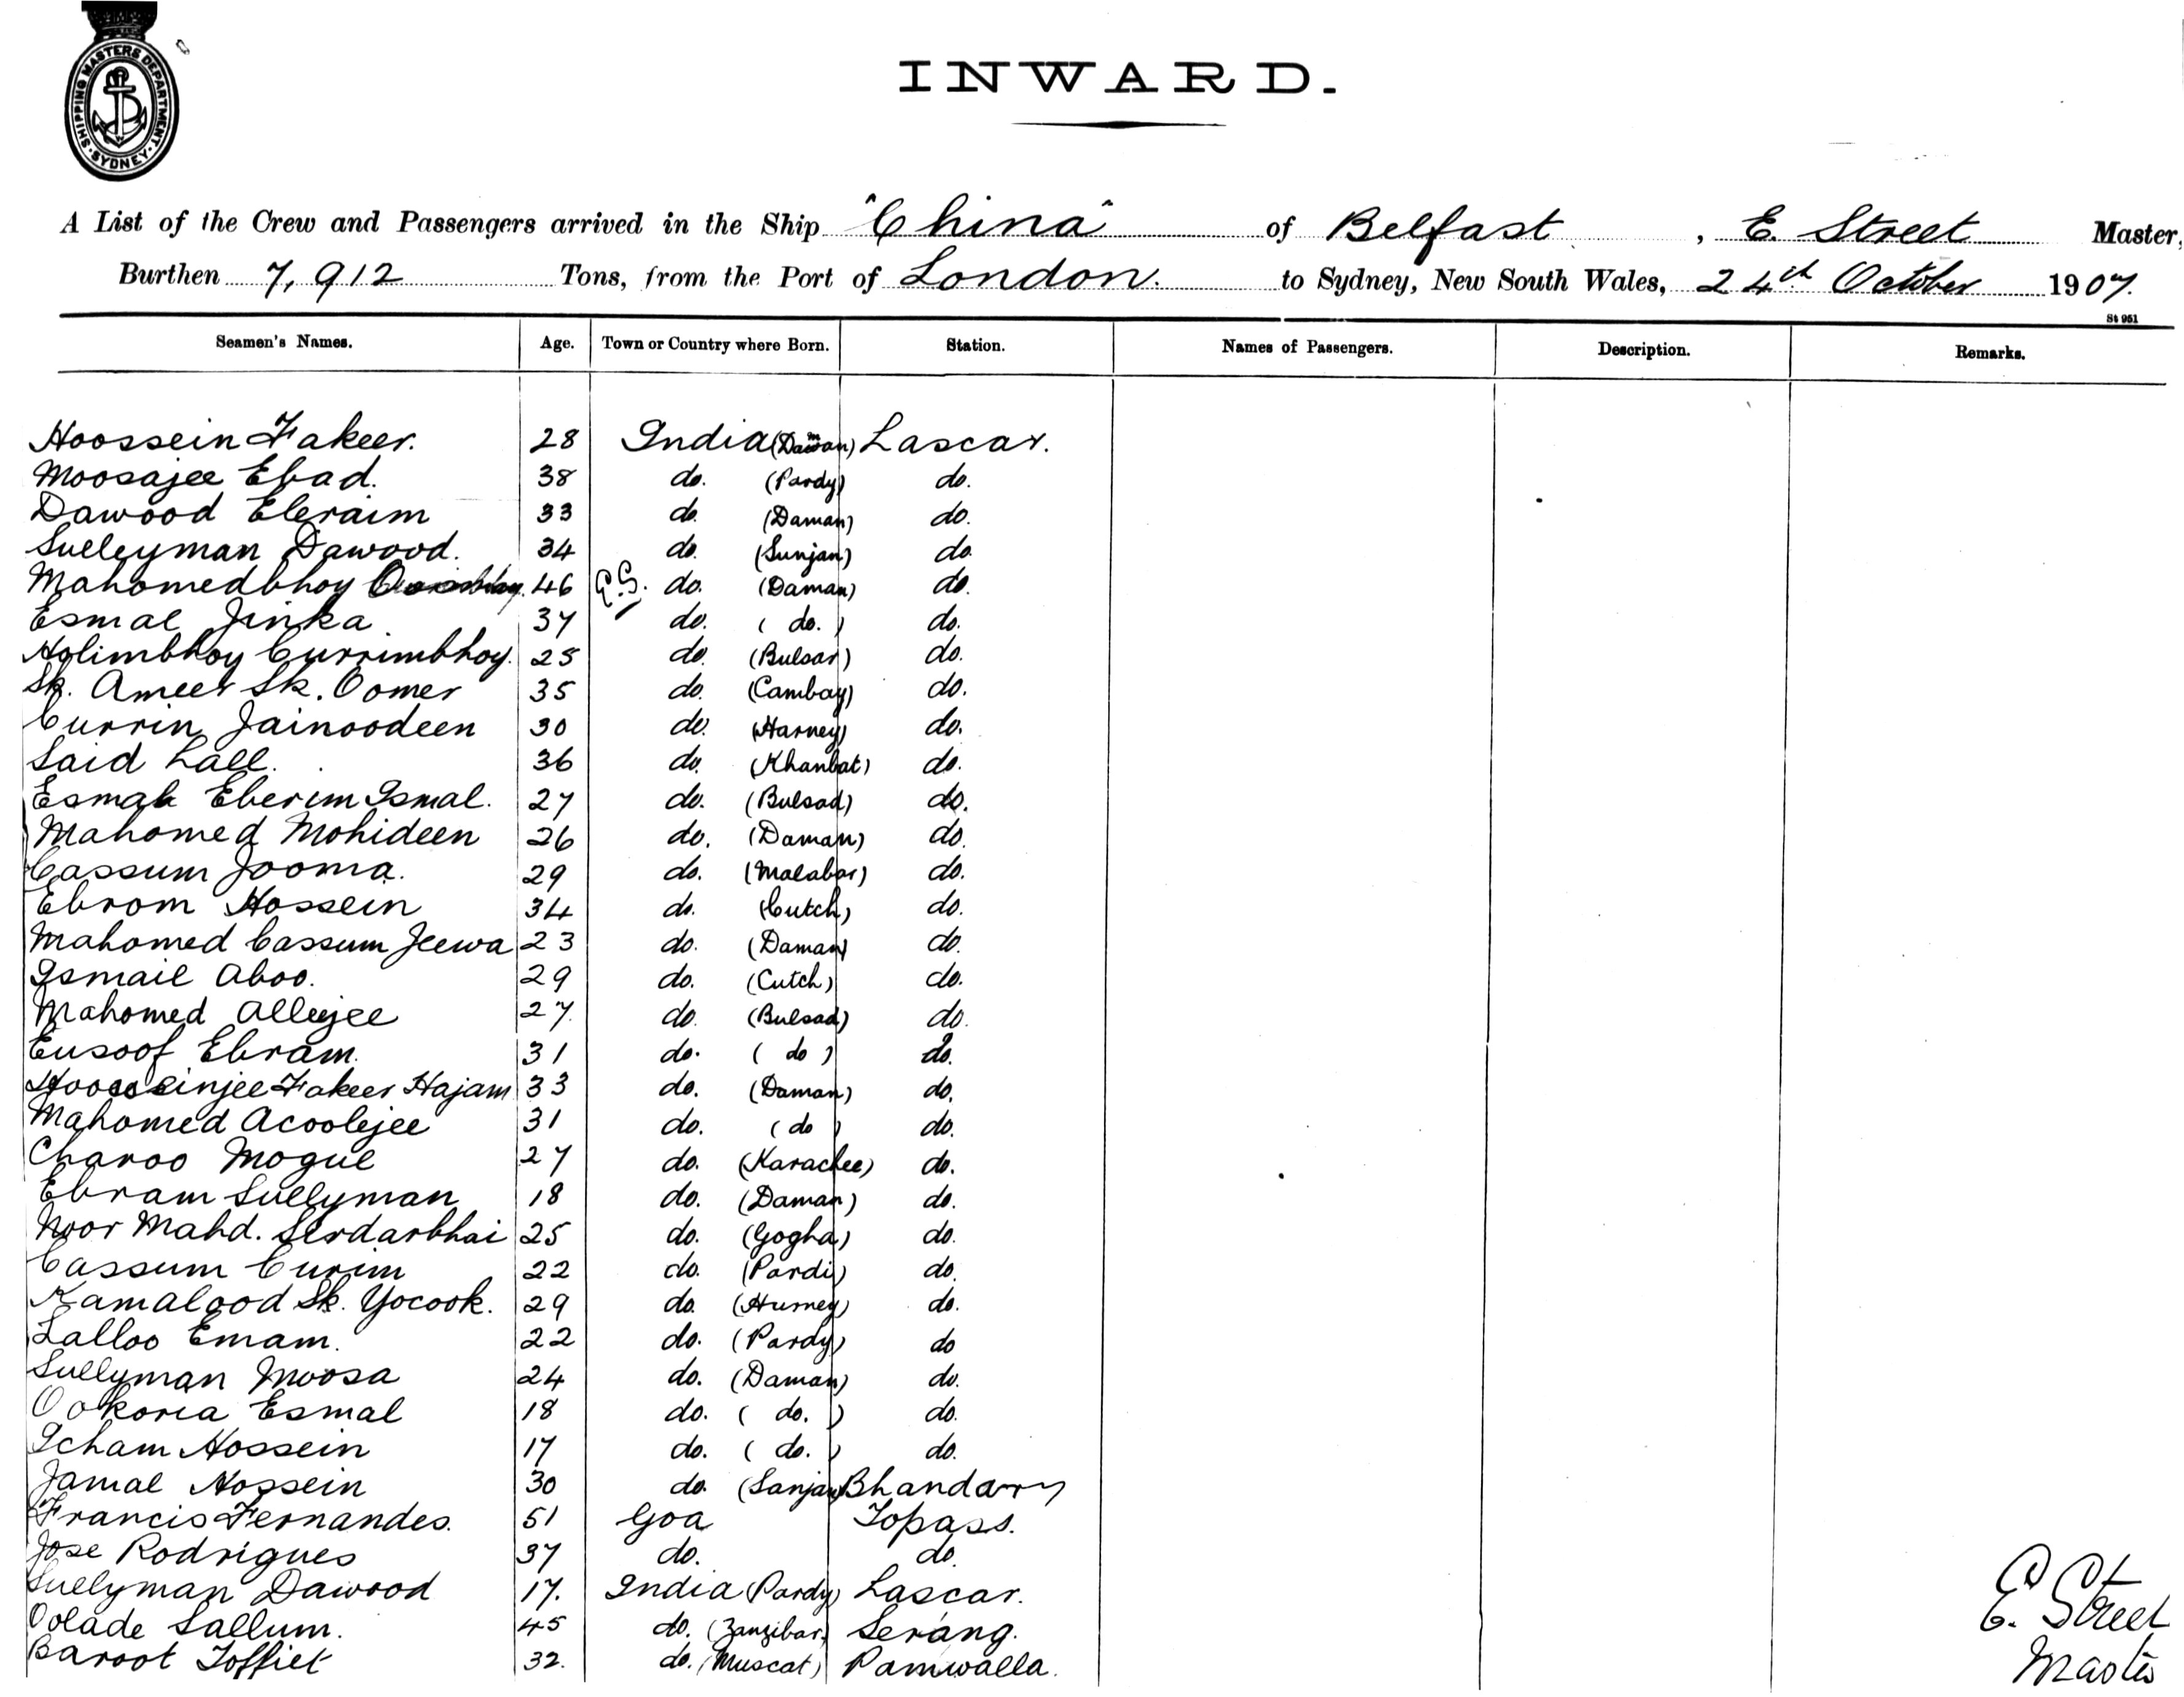 SHIPPING MASTERS DEPARTMENT · SYDNEY ·
INWARD.
A List of the Crew and Passengers arrived in the Ship "China" of Belfast, E. Street Master,
Burthen 7,912 Tons, from the Port of London. to Sydney, New South Wales, 24th October 1907.
St 951
Seamen's Names. Age. Town or Country where Born. Station. Names of Passengers. Description. Remarks.
Hoossein Fakeer. 28 India (Daman) Lascar.
Moosajee Ebad. 38 do. (Pardy) do.
Dawood Eleraim 33 do. (Daman) do.
Sulleyman Dawood. 34 do. (Sunjan) do.
Mahomedbhoy 46 E.S. do. (Daman) do.
Esmal Jinka 37 do. ( do. ) do.
Holimbhoy Currimbhoy. 25 do. (Bulsar) do.
Sk. Ameer Sk. Oomer 35 do. (Cambay) do.
Currin Jainoodeen 30 do. (Harney) do.
Said Lall. 36 do. (Khanbat) do.
Esmal Eberim Ismal. 27 do. (Bulsad) do.
Mahomed Mohideen 26 do. (Daman) do.
Cassum Jooma. 29 do. (Malabar) do.
Ebrom Hossein 34 do. (Cutch) do.
Mahomed Cassum Jeewa 23 do. (Daman) do.
Ismail Aboo. 29 do. (Cutch) do.
Mahomed Alleejee 27. do. (Bulsad) do.
Eusoof Ebram. 31 do. ( do ) do.
Hoosseinjee Fakeer Hajam 33 do. (Daman) do.
Mahomed Acoolejee 31 do. ( do ) do.
Charoo Mogul 27 do. (Karachee) do.
Ebram Sullyman 18 do. (Daman) do.
Noor Mahd. Serdarbhai 25 do. (Gogha) do.
Cassum Curim 22 do. (Pardi) do.
Kamalood Sk. Yocook. 29 do. (Hurney) do.
Lalloo Emam. 22 do. (Pardy) do
Sullyman Moosa 24 do. (Daman) do.
Ookoria Esmal 18 do. ( do. ) do.
Icham Hossein 17 do. ( do. ) do.
Jamal Hossein 30 do. (Sanjan) Bhandary
Francis Fernandes. 51 Goa Topass.
Jose Rodrigues 37 do. do.
Sullyman Dawood 17. India (Pardy) Lascar.
Oolade Sallum. 45 do. (Zanzibar) Serang.
Baroot Toffiet 32. do. (Muscat) Pamwalla.
E. Street
Master